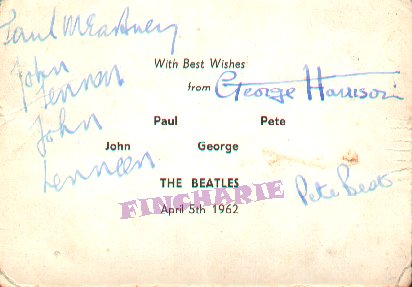 Paul McCartney
With Best Wishes
John
Lennon
from George Harrison
Paul Pete
John
John George
Lennon
THE BEATLES
Pete Best
FINGHARIE
April 5th 1962